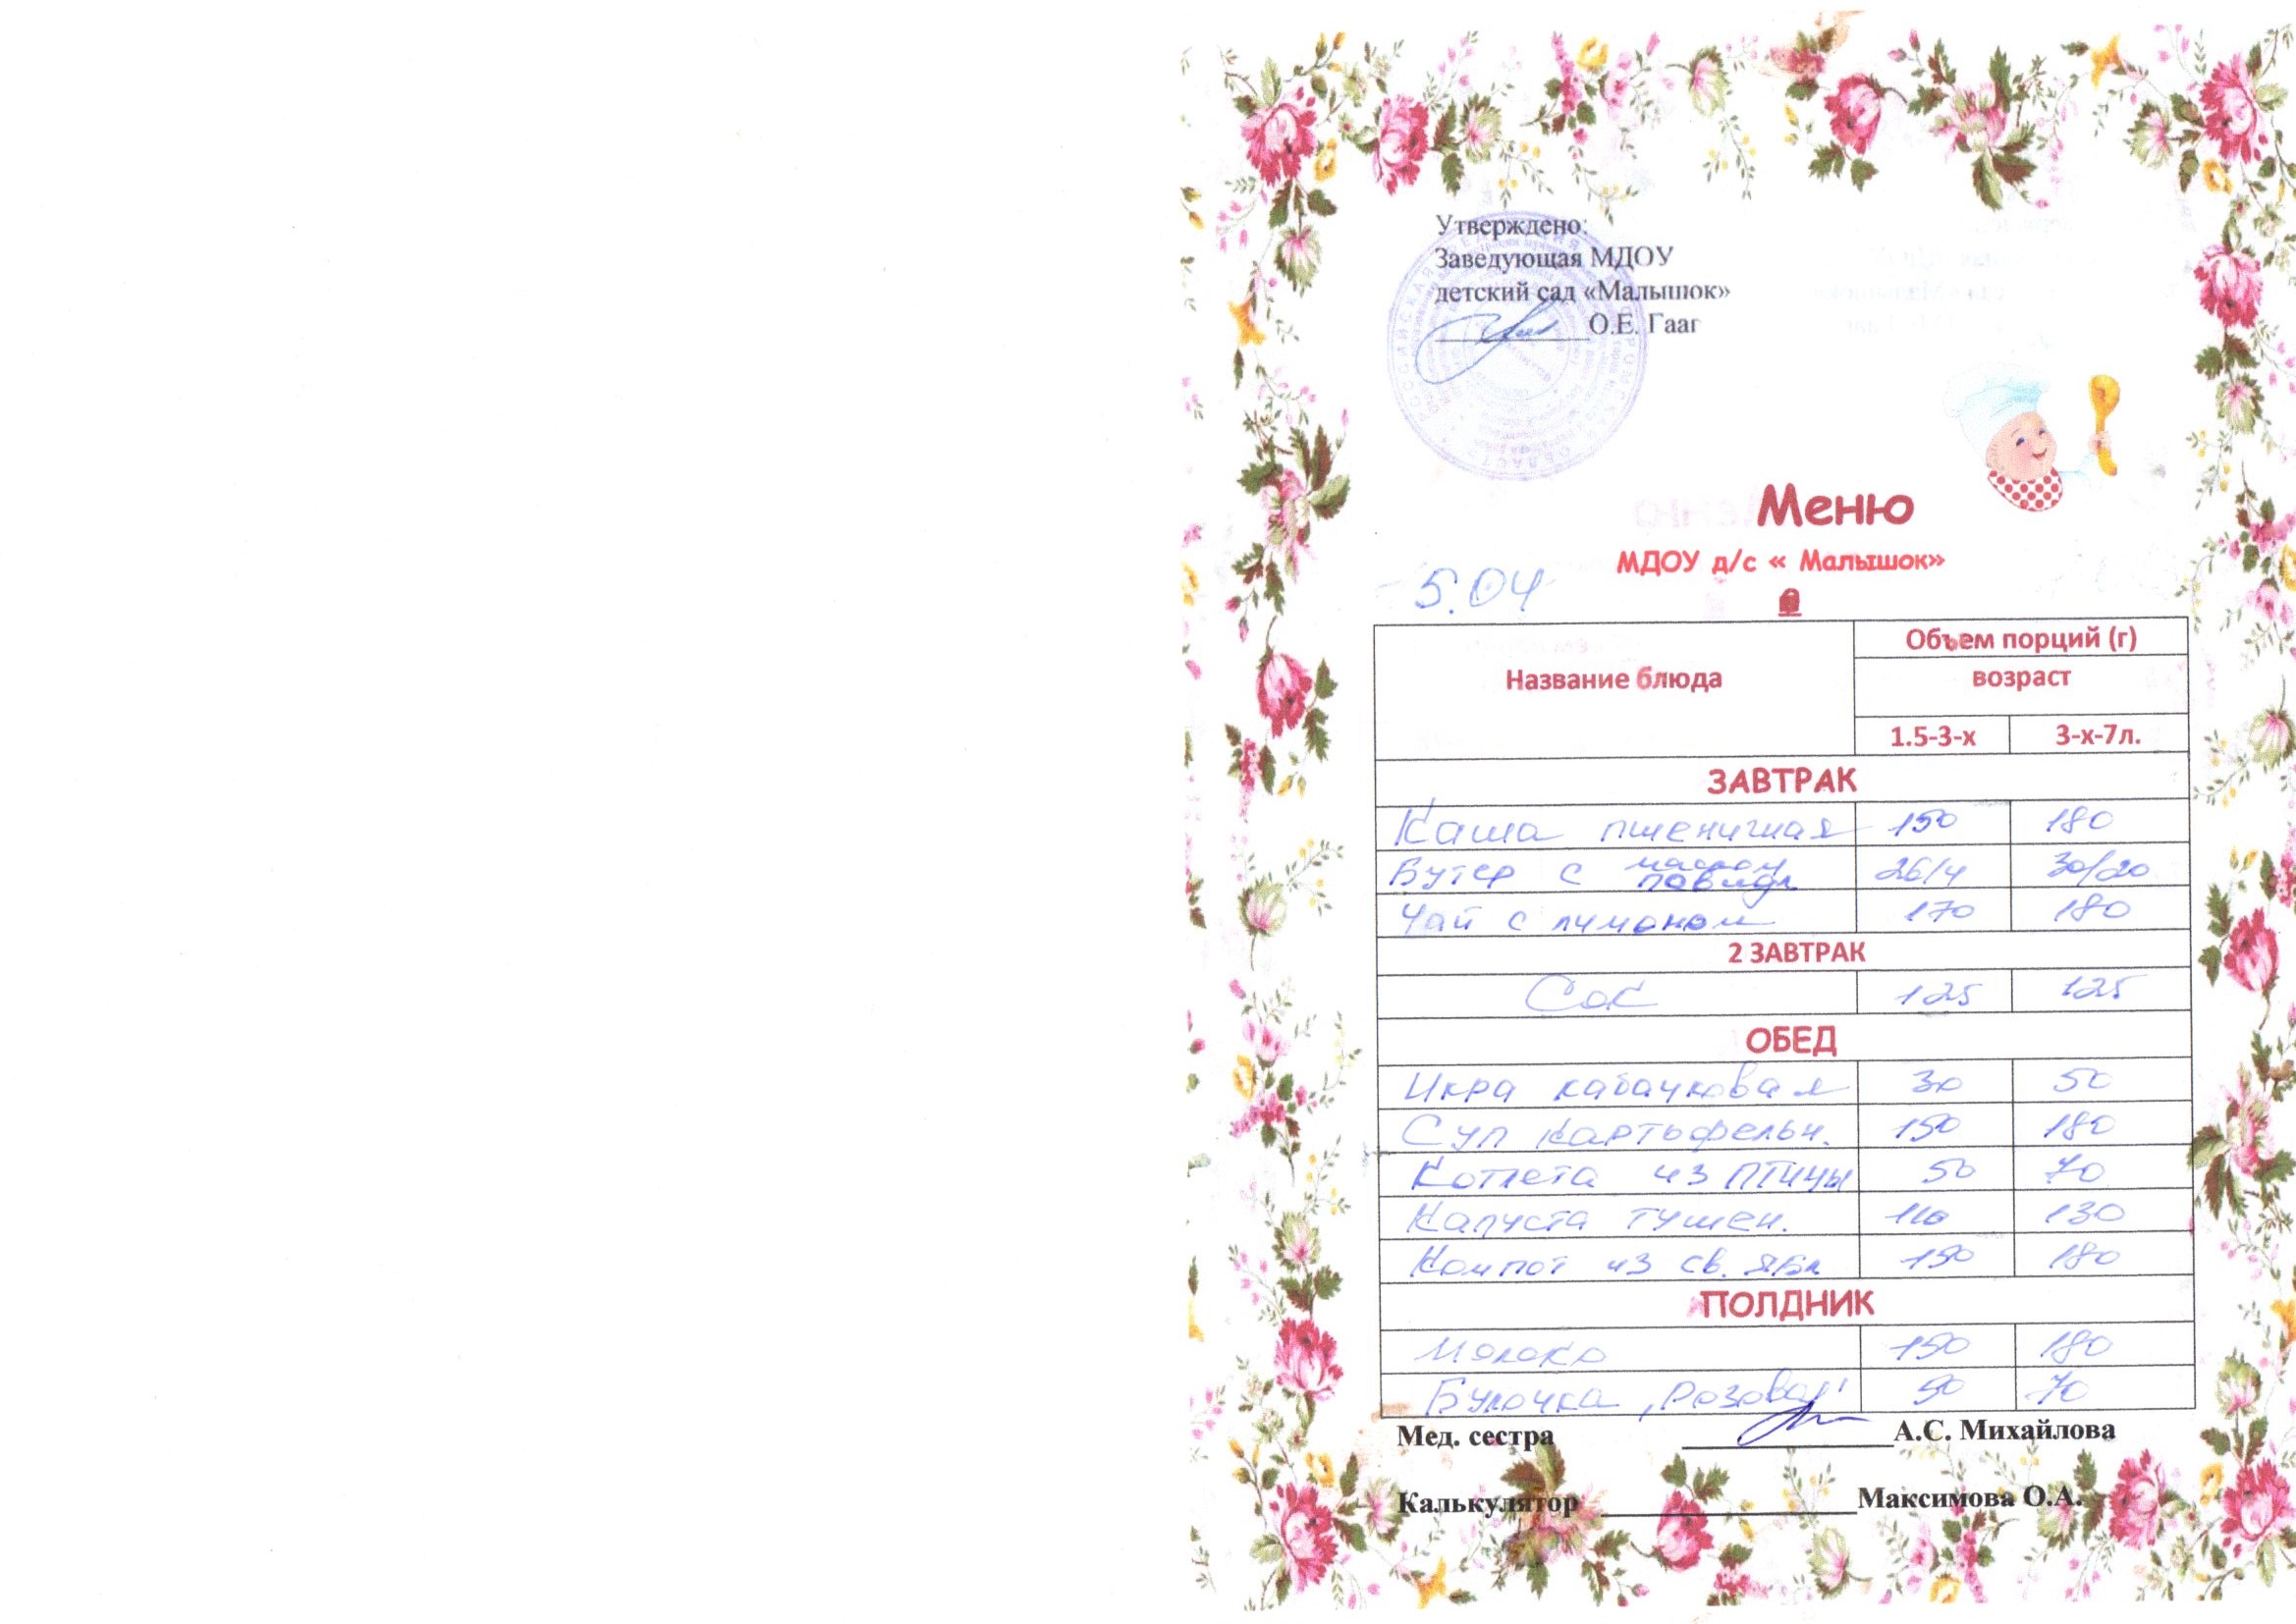 Утверждено:
Заведующая МДОУ
детский сад «Малышок»
О.Е. Гааг
Меню
МДОУ д/с « Малышок»
5.04
Название блюда
Объем порций (г)
возраст
1.5-3-х 3-х-7л.
ЗАВТРАК
Каша пшеничная 150 180
Бутер с маслом повидл 26/4 30/20
Чай с лимоном 170 180
2 ЗАВТРАК
Сок 125 125
ОБЕД
Икра кабачковая 30 50
Суп картофельн. 150 180
Котлета из птицы 50 70
Капуста тушен. 110 130
Компот из св. ябл 150 180
ПОЛДНИК
Молоко 150 180
Булочка „розовая" 50 70
Мед. сестра А.С. Михайлова
Калькулятор Максимова О.А.